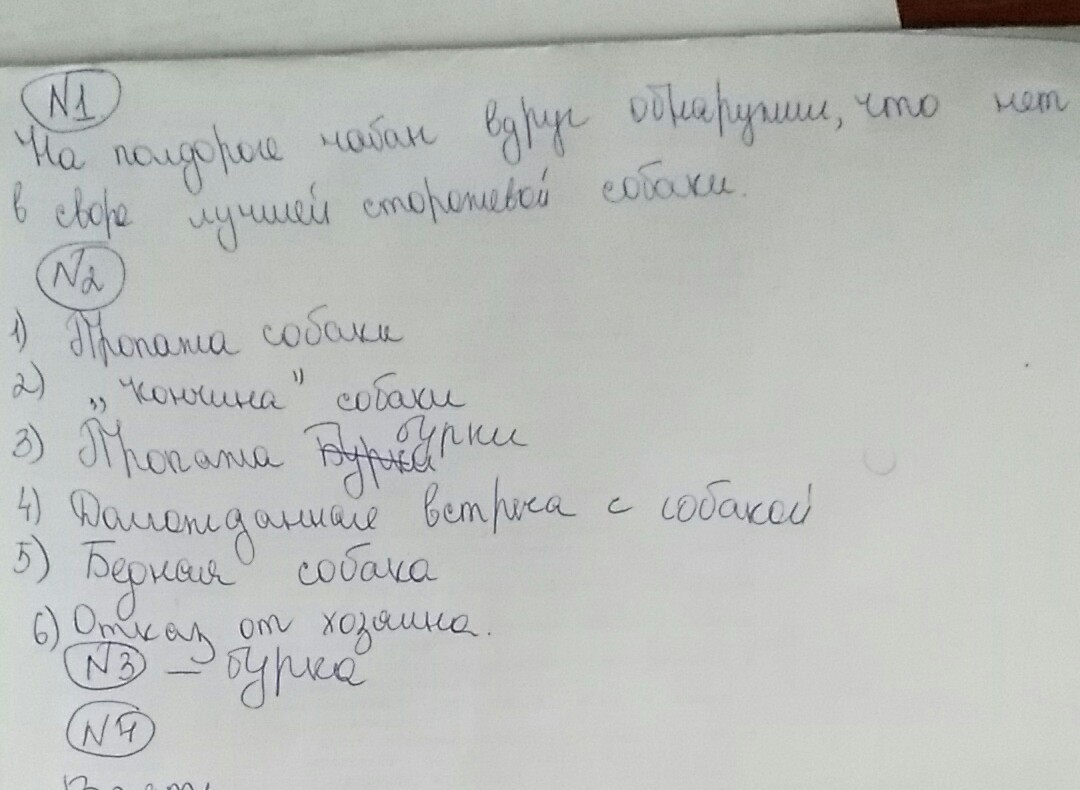 N1
На полдороге чабан вдруг обнаружил, что нет
в своре лучшей сторожевой собаки.
N2
1) Пропажа собаки
2) „Кончина" собаки
3) Пропажа Бурка бурки
4) Долгожданная встреча с собакой
5) Бедная собака
6) Отказ от хозяина.
N3 – бурка
N4